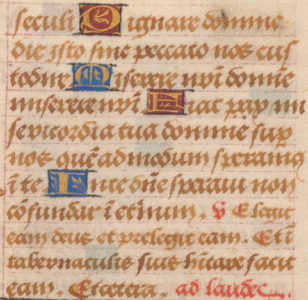 seculi Dignare domine
die isto sine peccato nos cus
todire Miserere nr̄i domine
miserere nr̄i Fiat
sericordia tua domine sup
nos quē ad modum speram9
ī te In te dn̄e speraui non
cōfundar ī et̄num. ℣ Elegit
eam deus et prelegit eam. Et ī
tabernaculis suis h̄itare facit
eam. Etcetera. ad laudes.